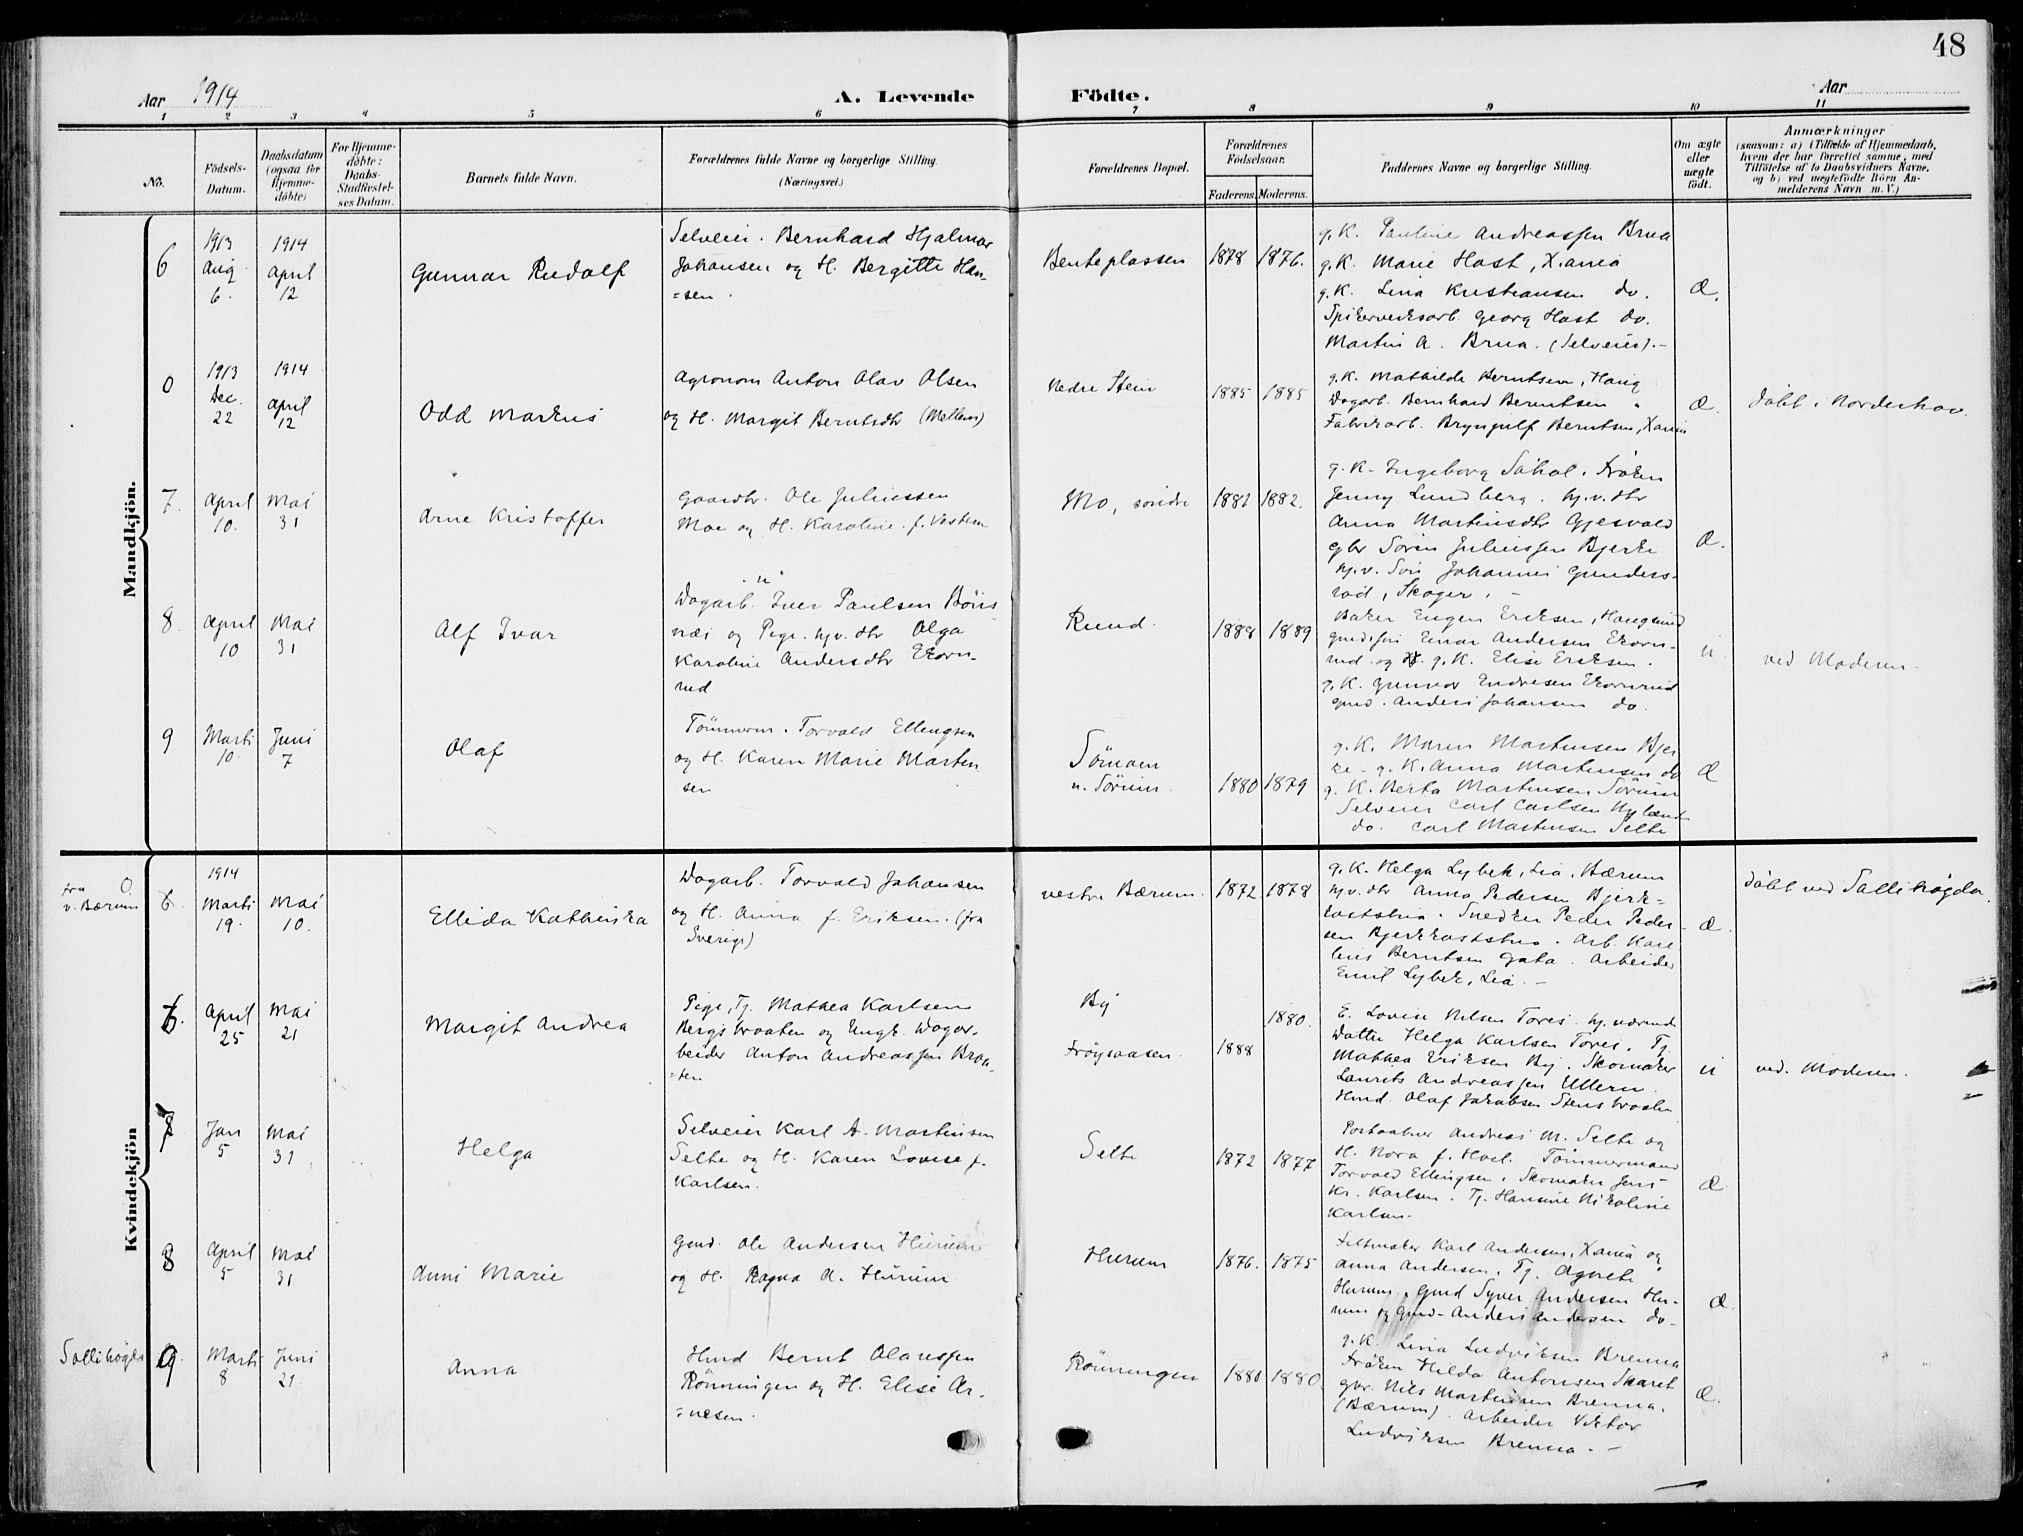 48
Aar 1914
A. Levende
Födte.
Aar
1 2 3 4 5 6 7 8 9 10 11
No.
Födsels-
Datum.
Daabsdatum
(ogsaa for
Hjemme-
döbte)
For Hjemme-
döbte:
Daabs-
Stadfæstel-
ses Datum.
Barnets fulde Navn.
Forældrenes fulde Navne og borgerlige Stilling.
(Næringsvei.)
Forældrenes Bopæl.
Forældrenes
Födselsaar.
Faderens. Moderens.
Faddernes Navne og borgerlige Stilling.
Om ægte
eller
uægte
födt.
Anmærkninger
(saasom: a) i Tilfælde af Hjemmedaab,
hvem der har forrettet samme, med
Tilföielse af to Daabsvidners Navne,
og b) ved uegtefödte Börn An-
melderens Navn m. V.)
Mandkjön.
6
1913
Aug
6.
1914
April
12
Gunnar Rudolf
Selveier. Bernhard Hjalmar
Johansen og H. Bergitte Han-
=sen.
Benteplassen
1878 1876.
g. K. Pauline Andreassen Brua
g. K. Marie Hast, X.ania
g. K. Lina Kristiansen do.
Spikerverksarb. Georg Hast do.
Martin A. Brua. (Selveier).-
Æ.
0
1913
Dec.
22
1914
April
12
Odd Markus
Agronom Anton Olav Olsen
og H. Margit Berntsdtr (Mellem)
Nedre Stein
1885 1885
g. K. Mathilde Berntsen, Haug
Dagarb. Bernhard Berntsen "
Fabrikarb. Bryngulf Berntsen, Xania
Æ.
Döbt i Norderhov.
7.
April
10.
Mai
31
Arne Kristoffer
Gaardbr. Ole Juliussen
Moe og H. Karoline f. Vestern
Mo, söndre
1881 1882.
g. K. Ingeborg Såhol. Fröken
Jenny Lundberg. hj.v. dtr
Anna Martinsdtr Gjesvold
gbr Sören Juliussen Bjerke
hj.v. Sön Johannes Gunders-
rød, Skoger. -
Æ.
8.
April
10
Mai
31
Alf Ivar
"u"
Dagarb. Iver Paulsen Börs
næs og Pige. hj.v. dtr Olga
Karoline Andersdtr Ekorn-
rud
Rund.
1888 1889
Baker Eugen Eriksen, Haugsund
gmd.sön Einar Andersen Ekorn-
rud og g. K. Elise Eriksen.
g. K. Gunvor Endresen Ekornrud
gmd. Anders Johansen do.
u.
ved Moderen.
9
Marts
10.
Juni
7
Olaf
Tömmerm. Torvald Ellengsen
og H. Karen Marie Marten
sen
Sömoen
u. Sörum.
1880 1879
g. K. Maren Martinsen Bjer
ke - g. K. Anna Martinsen do
g. K. Berta Martinsen Sörum
Selveier Carl Carlsen Nyland
do. Carl Martinsen Selte
Æ
Kvindekjön
fra O.
v. Bærum
6.
1914
Marts
19.
Mai
10.
Ellida Kathinka
Dagarb. Torvald Johansen
og H. Anna f. Eriksen. (fra
Sverige)
vestre Bærum.
1872. 1878
g. K. Helga Lybek, Lia, Bærum
hj.v. dtr Anna Pedersen Bjerk-
kaststua. Snedker Peder Peder-
sen Bjerkkaststua. Arb. Kare
lius Berntsen Gata. Arbeider
Emil Lybek, Lia. -
Æ.
Döbt ved Sollihögda.
6.
April
25
Mai
21
Margit Andrea
Pige, Tj. Mathea Karlsen
Bergsbraaten og Ungk. Dagar-
beider Anton Andreassen Braa-
=ten
By
Fröysaasen.
1888
1880.
E. Lovise Nilsen Tores. hj.værende
Datter Helga Karlsen Tores. Tj.
Mathea Eriksen By. Skomaker
Laurits Andreassen Ullern.
Hmd. Olaf Jakobsen Stensbraaten
u
ved. Moderen.
7
Jan
5
Mai
31
Helga
Selveier Karl A. Martinsen
Selte og H. Karen Lovise f.
Karlsen.
Selte
1872 1877
Postaabner Andreas M. Selte og
H. Nora f. Hoel. Tömmermand
Torvald Ellingsen. Skomaker Jens
Kr. Karlsen. Tj. Hansine Nikoline
Karlsen.
Æ
8
April
5
Mai
31
Anni Marie
Gmd. Ole Andersen Hurum
og H. Ragna A. Hurum
Hurum
1876. 1875
Feltmaker Karl Andersen, Xania og
Anna Andersen. Tj. Agnete
Hurum. Gmd Syver Andersen Hu-
rum og Gmd- Anders Andersen do-
Æ.
Sollihögda
9.
Marts
8
Juni
21.
Anna
Hmd Bernt Olaussen
Rönningen og H. Elise Ar-
=nesen.
Rönningen
1880 1880.
g. K. Lina Ludviksen Brenna
Fröken Hilda Antonsen Skaret
gbr. Nils Martinsen Brenna.
(Bærum). Arbeider Viktor
Ludviksen Brenna. -
Æ.